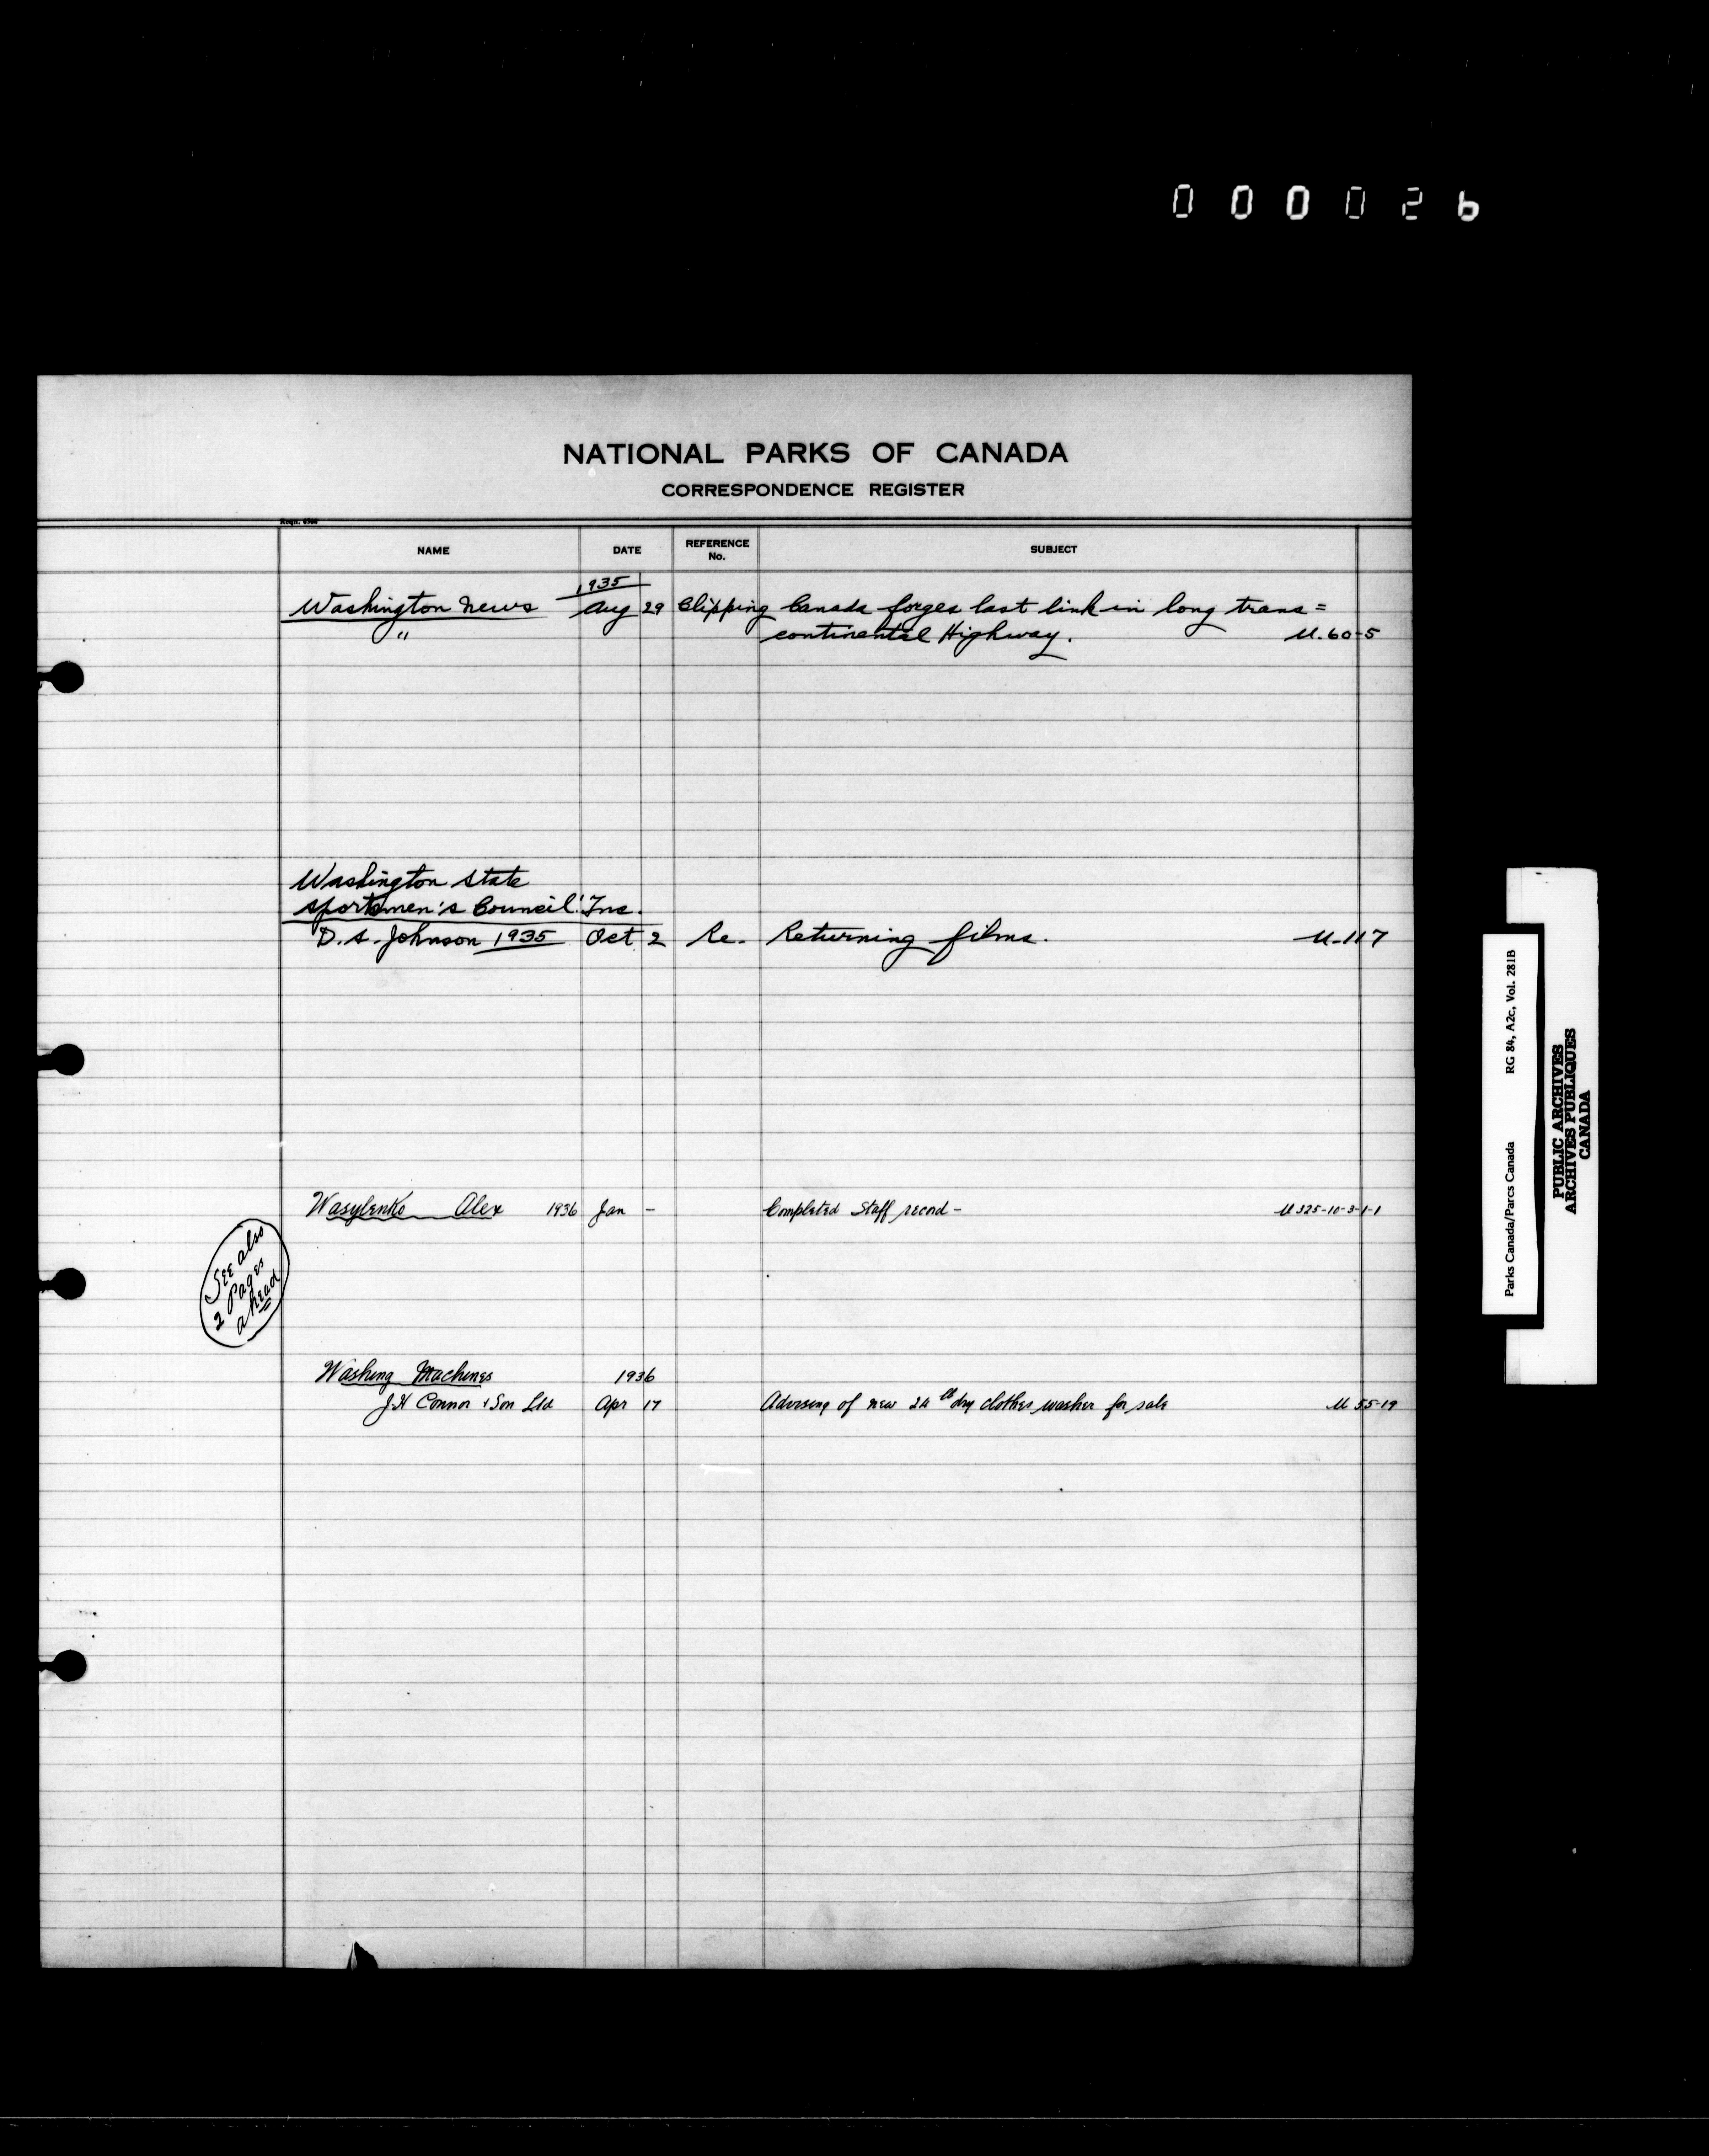 000026
NATIONAL PARKS OF CANADA
CORRESPONDENCE REGISTER
NAME DATE REFERENCE No. SUBJECT
1935
Washington News Aug 29 Clipping Canada forges last link in long trans=
" continental Highway. U.60-5
Washington State
Sportsmen's Council Inc.
D.S. Johnson 1935 Oct 2 Re. Returning films. U-117
Wasylenko Alex 1936 Jan - Completed Staff record - U325-10-3-1-1
See also
2 Pages
ahead
Washing Machines 1936
J.H Connor & Son Ltd Apr 17 Advising of new 24 lb dry clothes washer for sale U 55-19
Parks Canada/Parcs Canada RG 84, A2c, Vol. 281B
PUBLIC ARCHIVES
ARCHIVES PUBLIQUES
CANADA